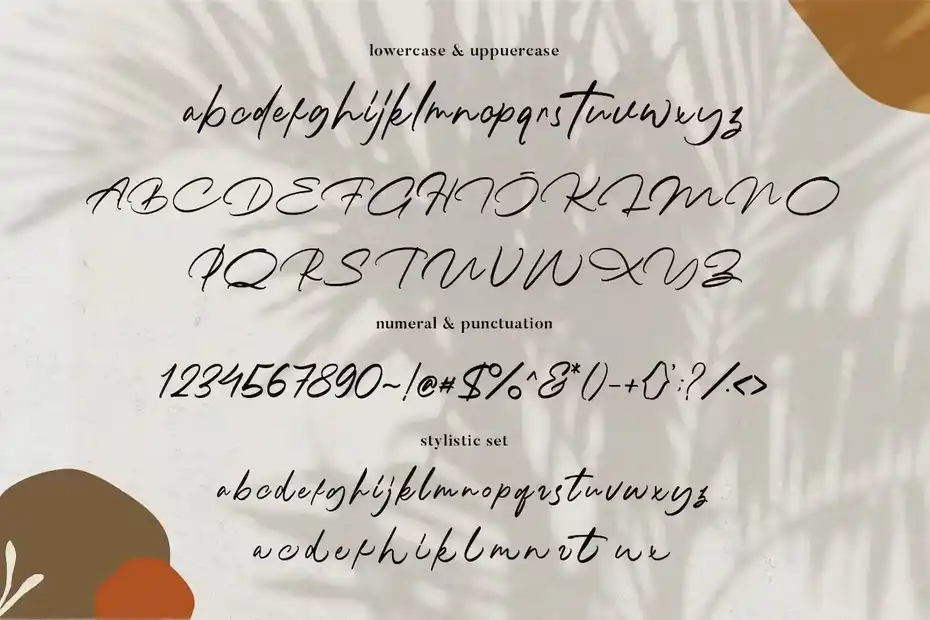 lowercase & uppuercase
abcdefghijklmnopqrstuvwxyz
ABCDEFGHIJKLMNO
PQRSTUVWXYZ
numeral & punctuation
1234567890~!@#$%^&*()-+{}':;?/.<>
stylistic set
abcdefghijklmnopqrstuvwxyz
acdefhiklmnrtux